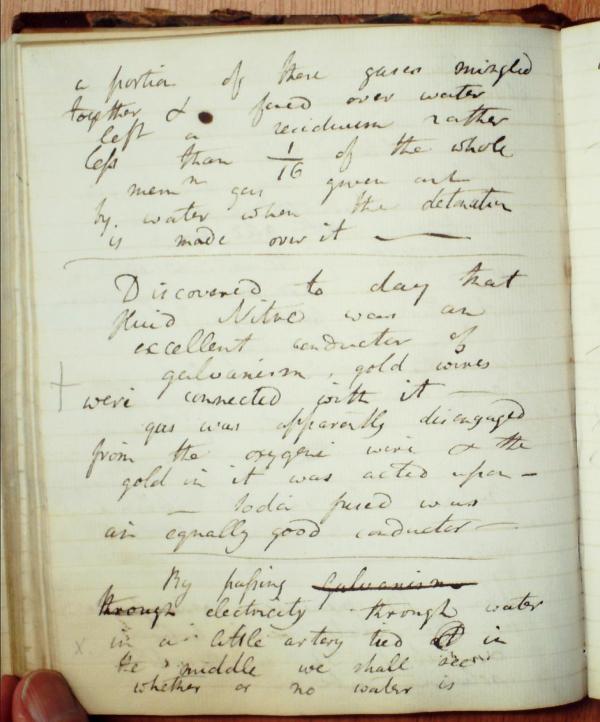 a portion of these gases mingled
together & fired over water
left a residuum rather
less than 1/16 of the whole
mem n gas given out
by. water when the detonation
is made over it —
Discovered to day that
fluid Nitre was an
excellent conductor of
galvanism, gold wires
were connected with it —
gas was apparently disengaged
from the oxygene wire & the
gold in it was acted upon —
— Soda fused was
an equally good conductor —
By passing galvanism
through electricity through water
in a little artery tied in
the middle we shall
whether or no water is